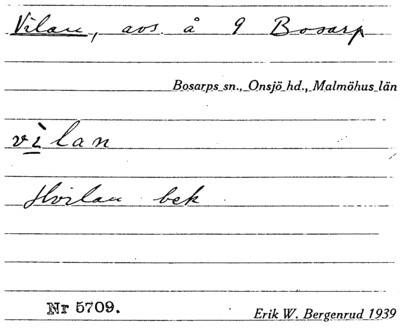 Vilan, avs. å 9 Bosarp
Bosarps sn., Onsjö hd., Malmöhus län
vìlan
Hvilan bek
Nr 5709.
Erik W. Bergenrud 1939